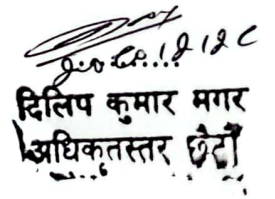 दिलिप कुमार मगर
अधिकृतस्तर छैटौं